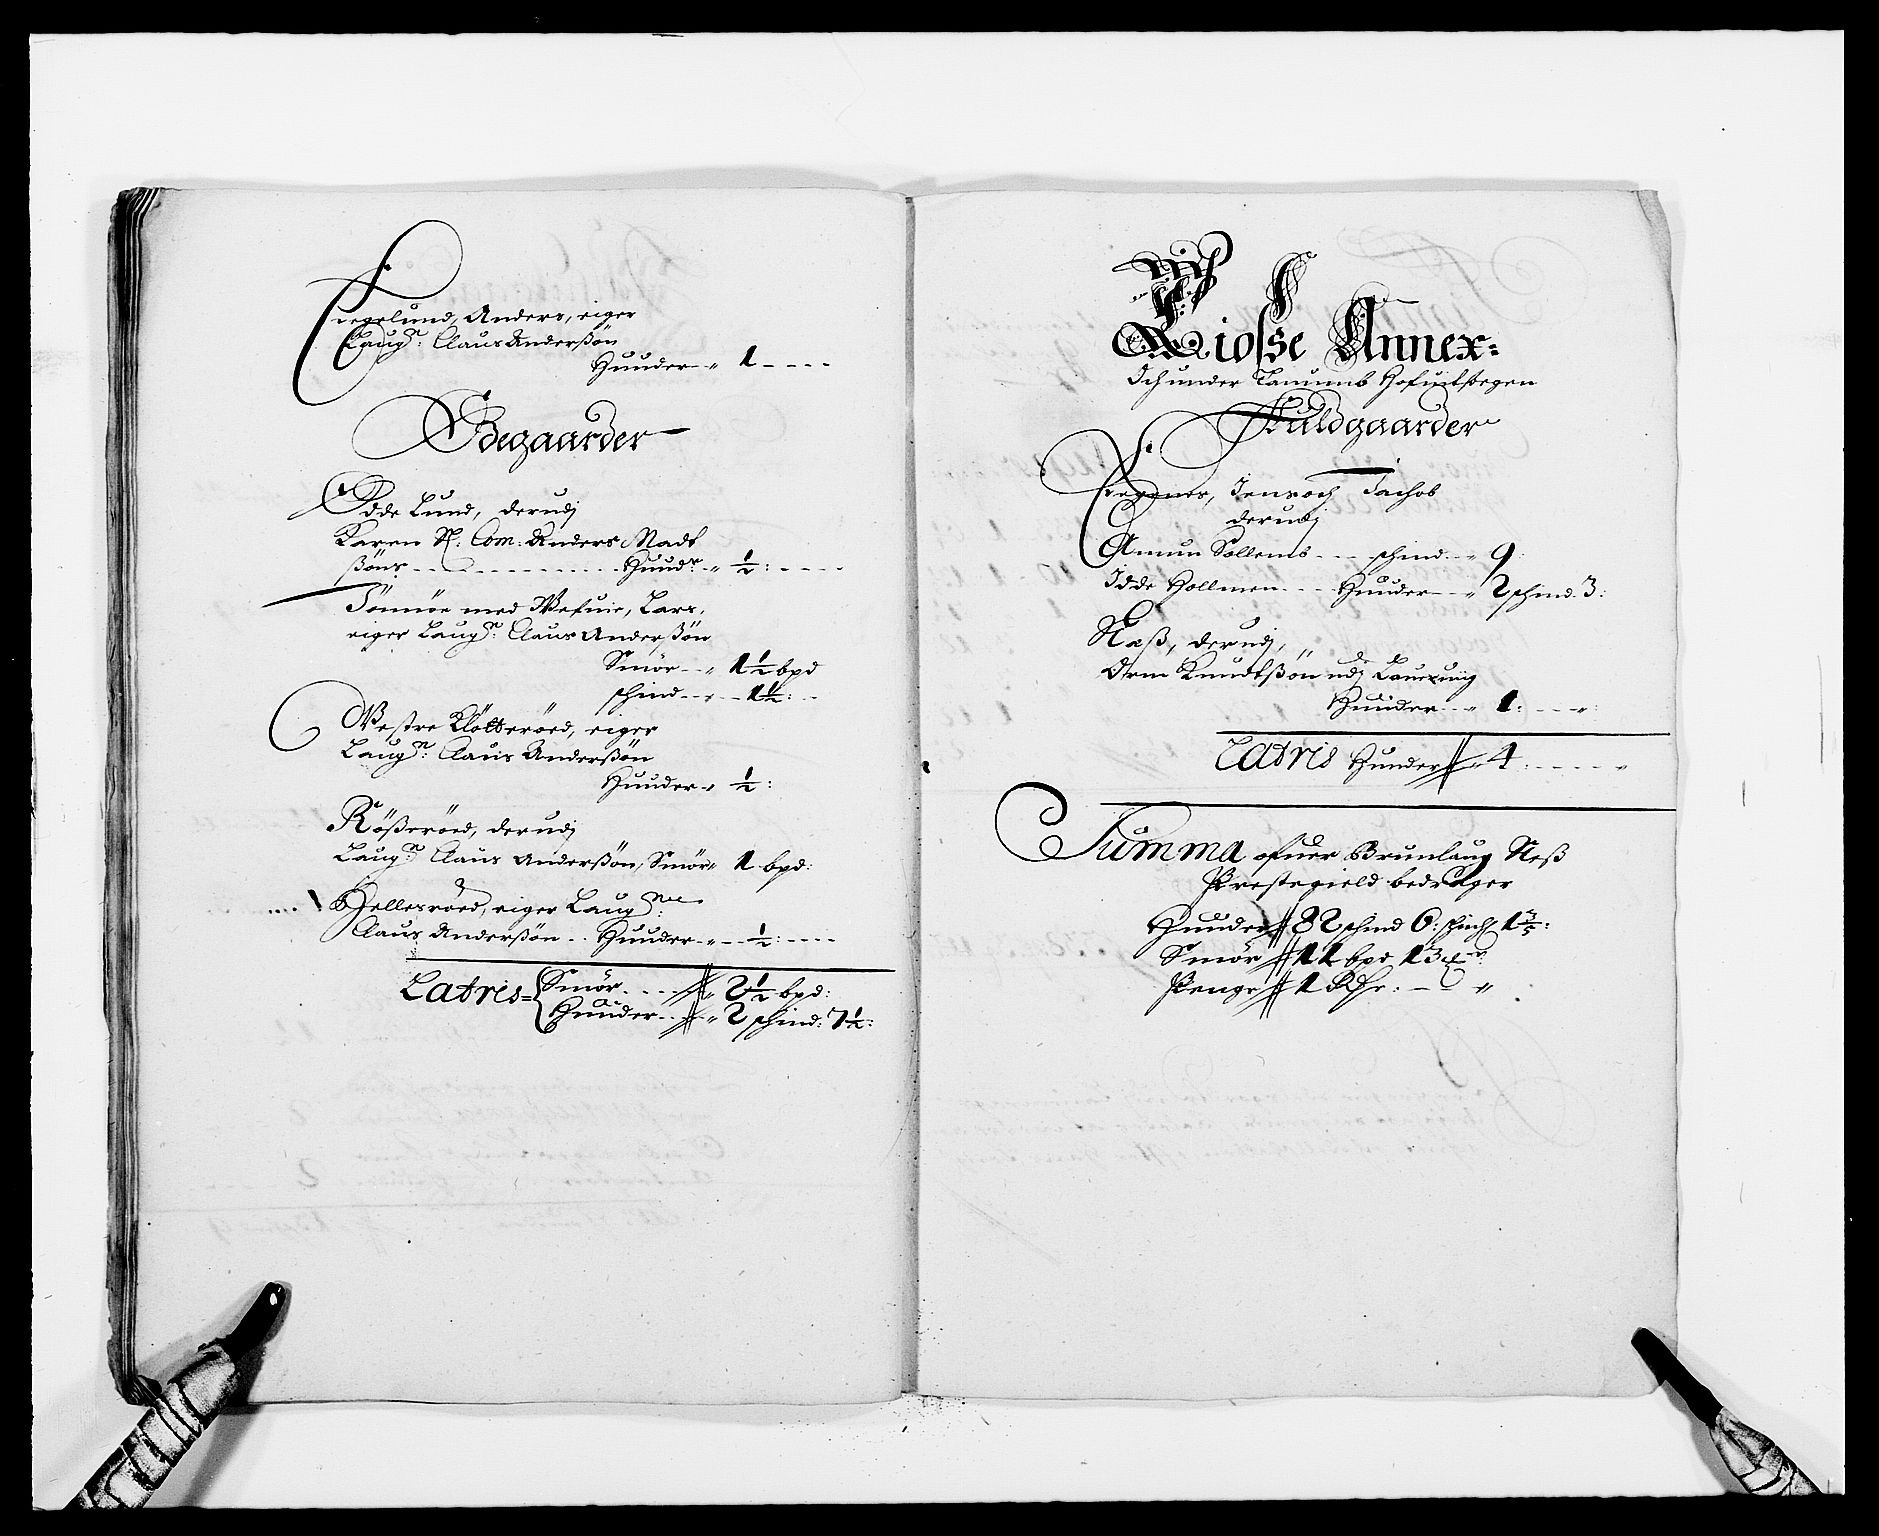 Fuglund, Anders, eiger
Laugm: Claus Anderßøn
Huuder „ 1 - - - -
Ødegaarder
Odde Lund, derudj
Karen Sl: Com: Anders Madt
ßøns - - - Huudr „ ½: - - - -
Tømøe med Wefuie, Lars,
eiger Laugm: Claus Anderßøn
Smør - - „ 1½ bpd
schind - - „ - 1½: -
Westre Kløtterøed, eiger
Laugm: Claus Anderßøn
Huuder „ ½:
Rößerøed, derudj
Laugm: Claus Anderßøn, Smør „ 1 bpd:
Hellesrøed, eiger Laugm:
Claus Anderßøn - - Huuder „ - ½: - - - -
Latris = Smør - - - // „ 2½ bpd:
Huuder - - // „ 2 schind: 7½:
Kiosse Annex:
Och under Tanumb Hofuitstegen
Fuldgaarder
Jens och Jachob
derudj
Amun Sollemb - - - schind - - „ 9:
Idde Hollmen - - - Huuder - - „ 2 schind 3:
Næß, derudj, „
Orm Knudtßøn udj Laueruiig
Huuder - - „ 1: - - - „:
Latris Huuder // „ 4: - - - - „
Summa ofuer Brunlaug Neß
Prestegield bedrager
Huuder // 82 schind 6: schich 1⅗:
Smør // 11 bpd 13
Penge // 1 Rdr: - „